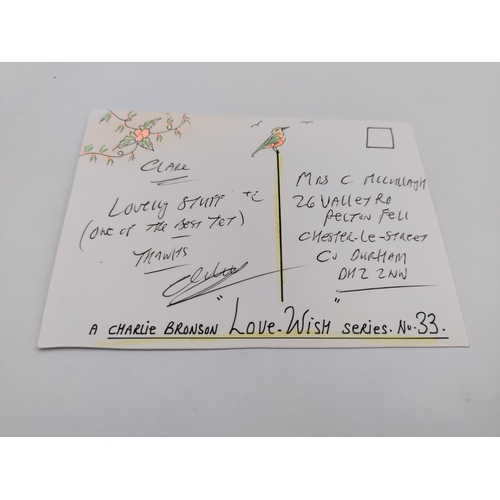 CLARE
LOVELY STUFF
(ONE OF THE BEST YET)
THANKS
MRS C MCCULLAGH
26 VALLEY RD
PELTON FELL
CHESTER-LE-STREET
CO DURHAM
DH2 2NW
A CHARLIE BRONSON "LOVE-WISH" SERIES. No. 33.